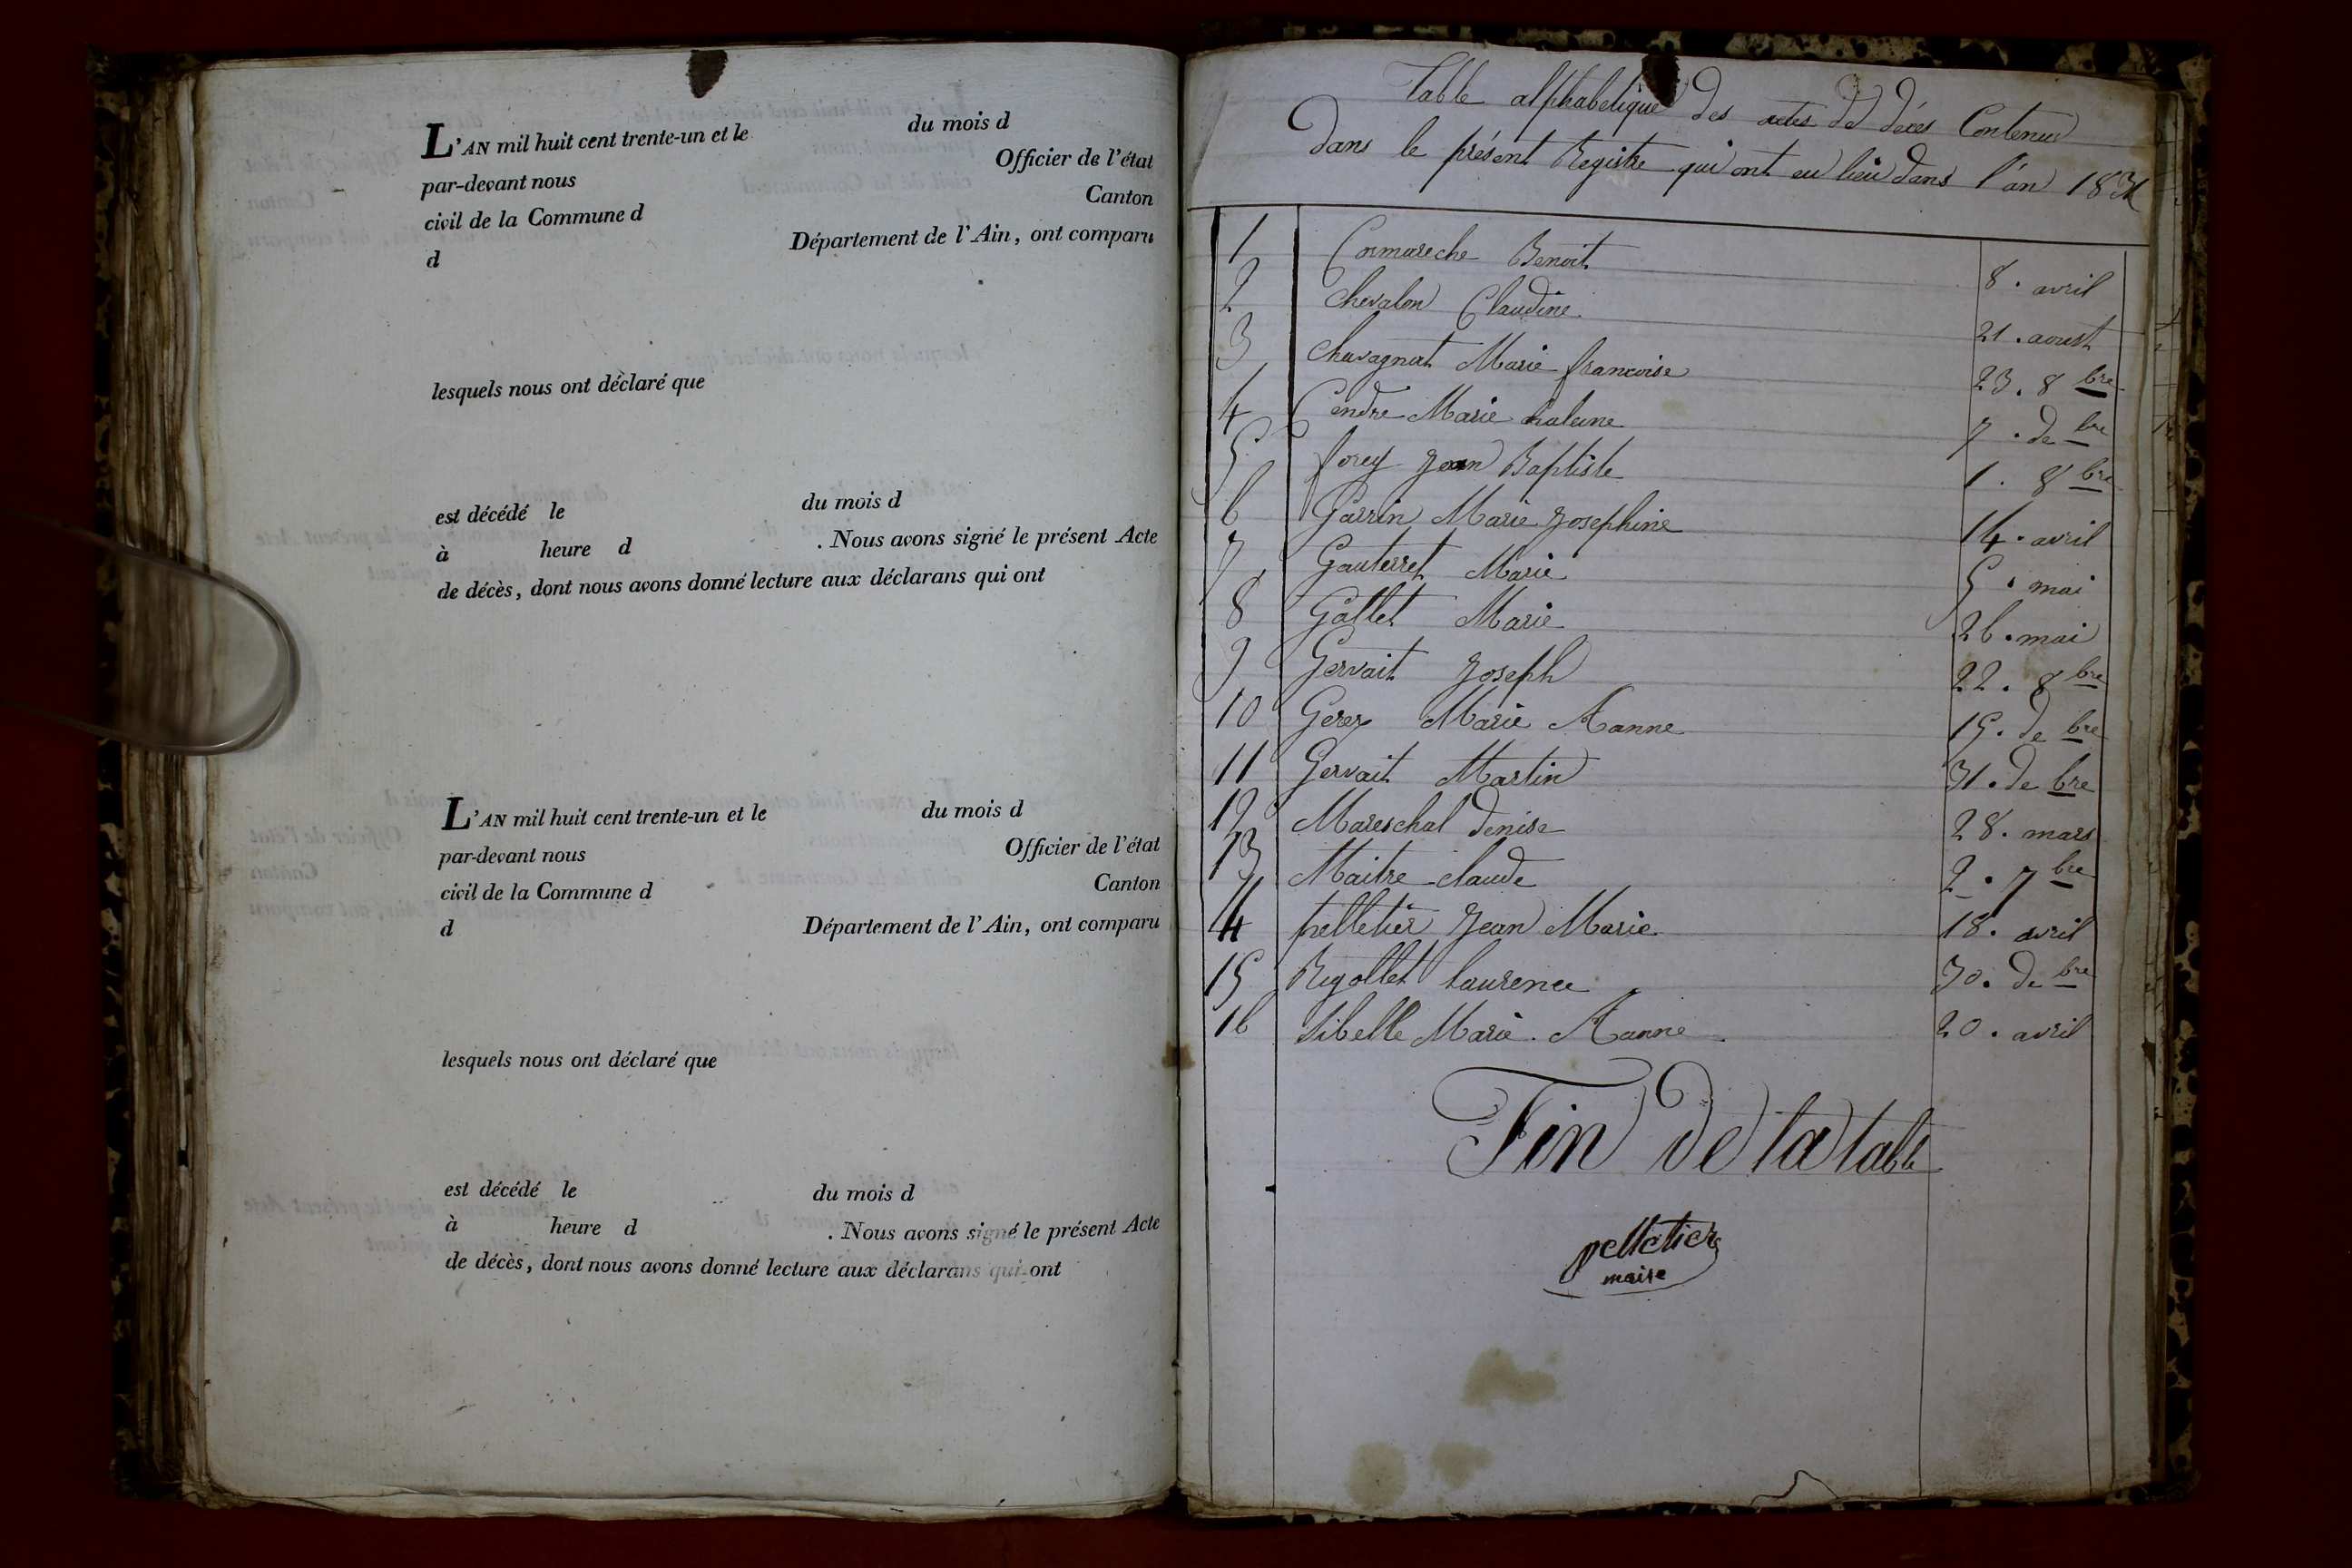 L'AN mil huit cent trente-un et le du mois d
par-devant nous Officier de l'état
civil de la Commune d Canton
d Département de l'Ain, ont comparu
lesquels nous ont déclaré que
est décédé le du mois d
à heure d . Nous avons signé le présent Acte
de décès, dont nous avons donné lecture aux déclarans qui ont
L'AN mil huit cent trente-un et le du mois d
par-devant nous Officier de l'état
civil de la Commune d Canton
d Département de l'Ain, ont comparu
lesquels nous ont déclaré que
est décédé le du mois d
à heure d . Nous avons signé le présent Acte
de décès, dont nous avons donné lecture aux déclarans qui ont
Table alphabetique des actes de déces Contenus
dans le présent Registre qui ont eu lieu dans l'an 1831
1 Cormareche Benoit 8. avril
2 Chevalon Claudine. 21. aoust
3 Chavagnat Marie francoise 23. 8bre
4 Cendre Marie 7. debre
5 forey Jean Baptiste 1. 8bre
6 Garrin Marie Josephine 14. avril
7 Gauterret Marie 5. mai
8 Gallet Marie 26. mai
9 Gervait Joseph 22. 8bre
10 Gerex Marie Aanne 15. debre
11 Gervait Martin 31. debre
12 Mareschal denise 28. mars
13 Maitre claude 2. 7bre
14 pelletier Jean Marie 18. avril
15 Rigollet laurence 30. debre
16 Sibelle Marie. Aanne 20. avril
Fin de la table
pelletier
maire